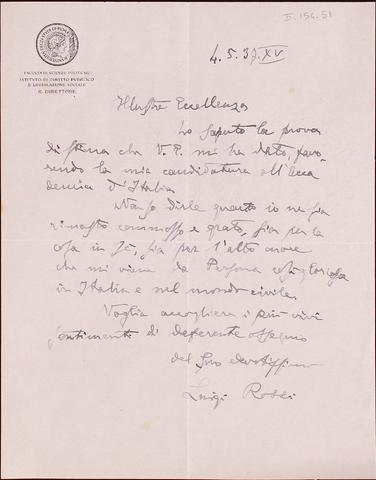 II. 156. 51
FACOLTÀ DI SCIENZE POLITICHE
ISTITUTO DI DIRITTO PUBBLICO
E LEGISLAZIONE SOCIALE
IL DIRETTORE
4. 5. 37. XV
Illustre Eccellenza
ho saputo la prova
di stima che V. E. mi ha dato, favo-
rendo la mia candidatura all'Acca
demia d'Italia
dirle quanto io ne sia
rimasto commosso e grato, sia per la
cosa in sé, sia per l'alto onore
che mi viene da Persona così gloriosa
in Italia e nel mondo civile.
Voglia accogliere i più vivi
sentimenti di deferente ossequio
del Suo devotissimo
Luigi Rossi